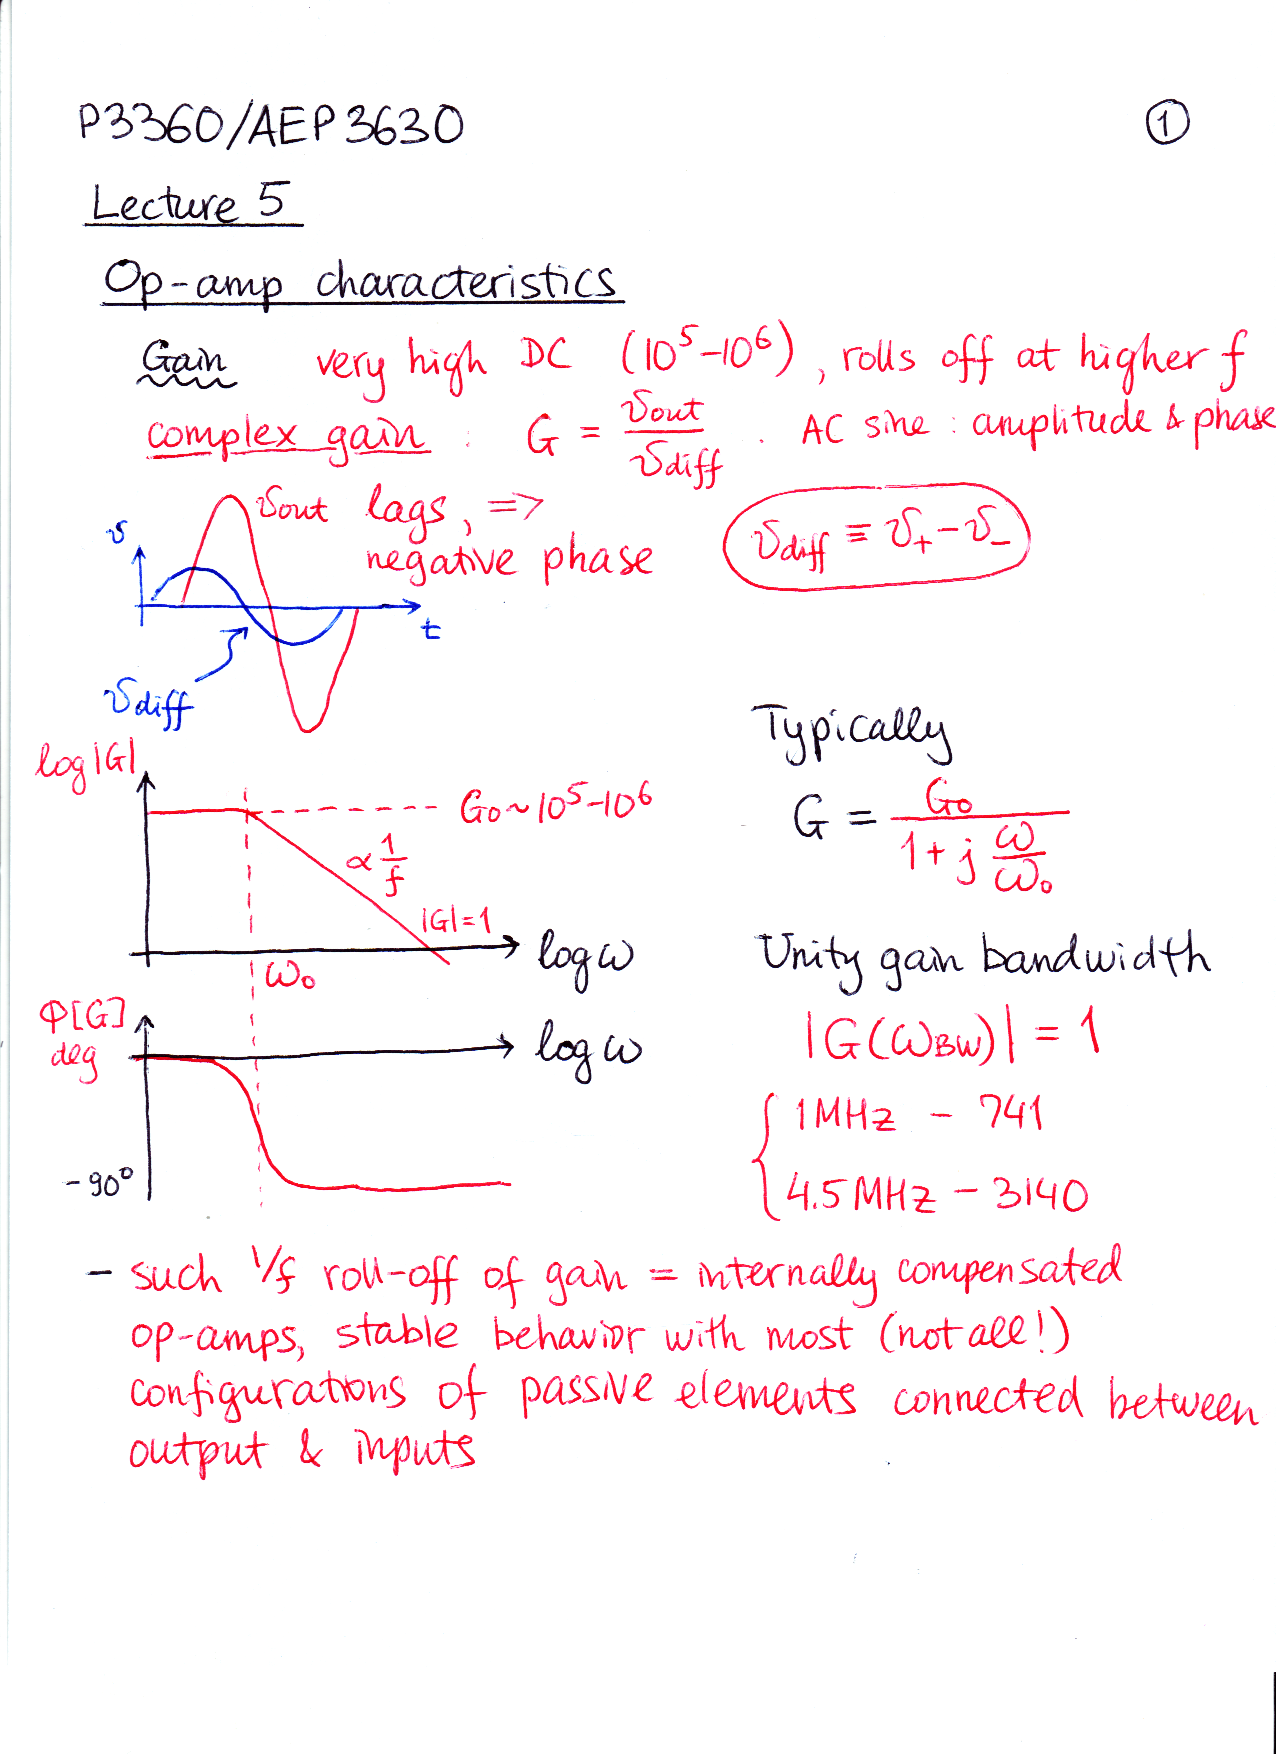 P3360/AEP3630
①
Lecture 5
Op-amp characteristics
Gain very high DC (10⁵-10⁶), rolls off at higher f
complex gain : G = υout/υdiff . AC sine : amplitude & phase
υout lags, =>
negative phase
υdiff ≡ υ₊ - υ₋
υ
t
υdiff
log|G|
G₀ ~ 10⁵-10⁶
∝ 1/f
|G|=1
log ω
ω₀
Typically
G = G₀/(1 + j ω/ω₀)
Φ[G]
deg
log ω
-90°
Unity gain bandwidth
|G(ω_BW)| = 1
{ 1MHz - 741
4.5MHz - 3140
- such 1/f roll-off of gain = internally compensated
op-amps, stable behavior with most (not all!)
configurations of passive elements connected between
output & inputs